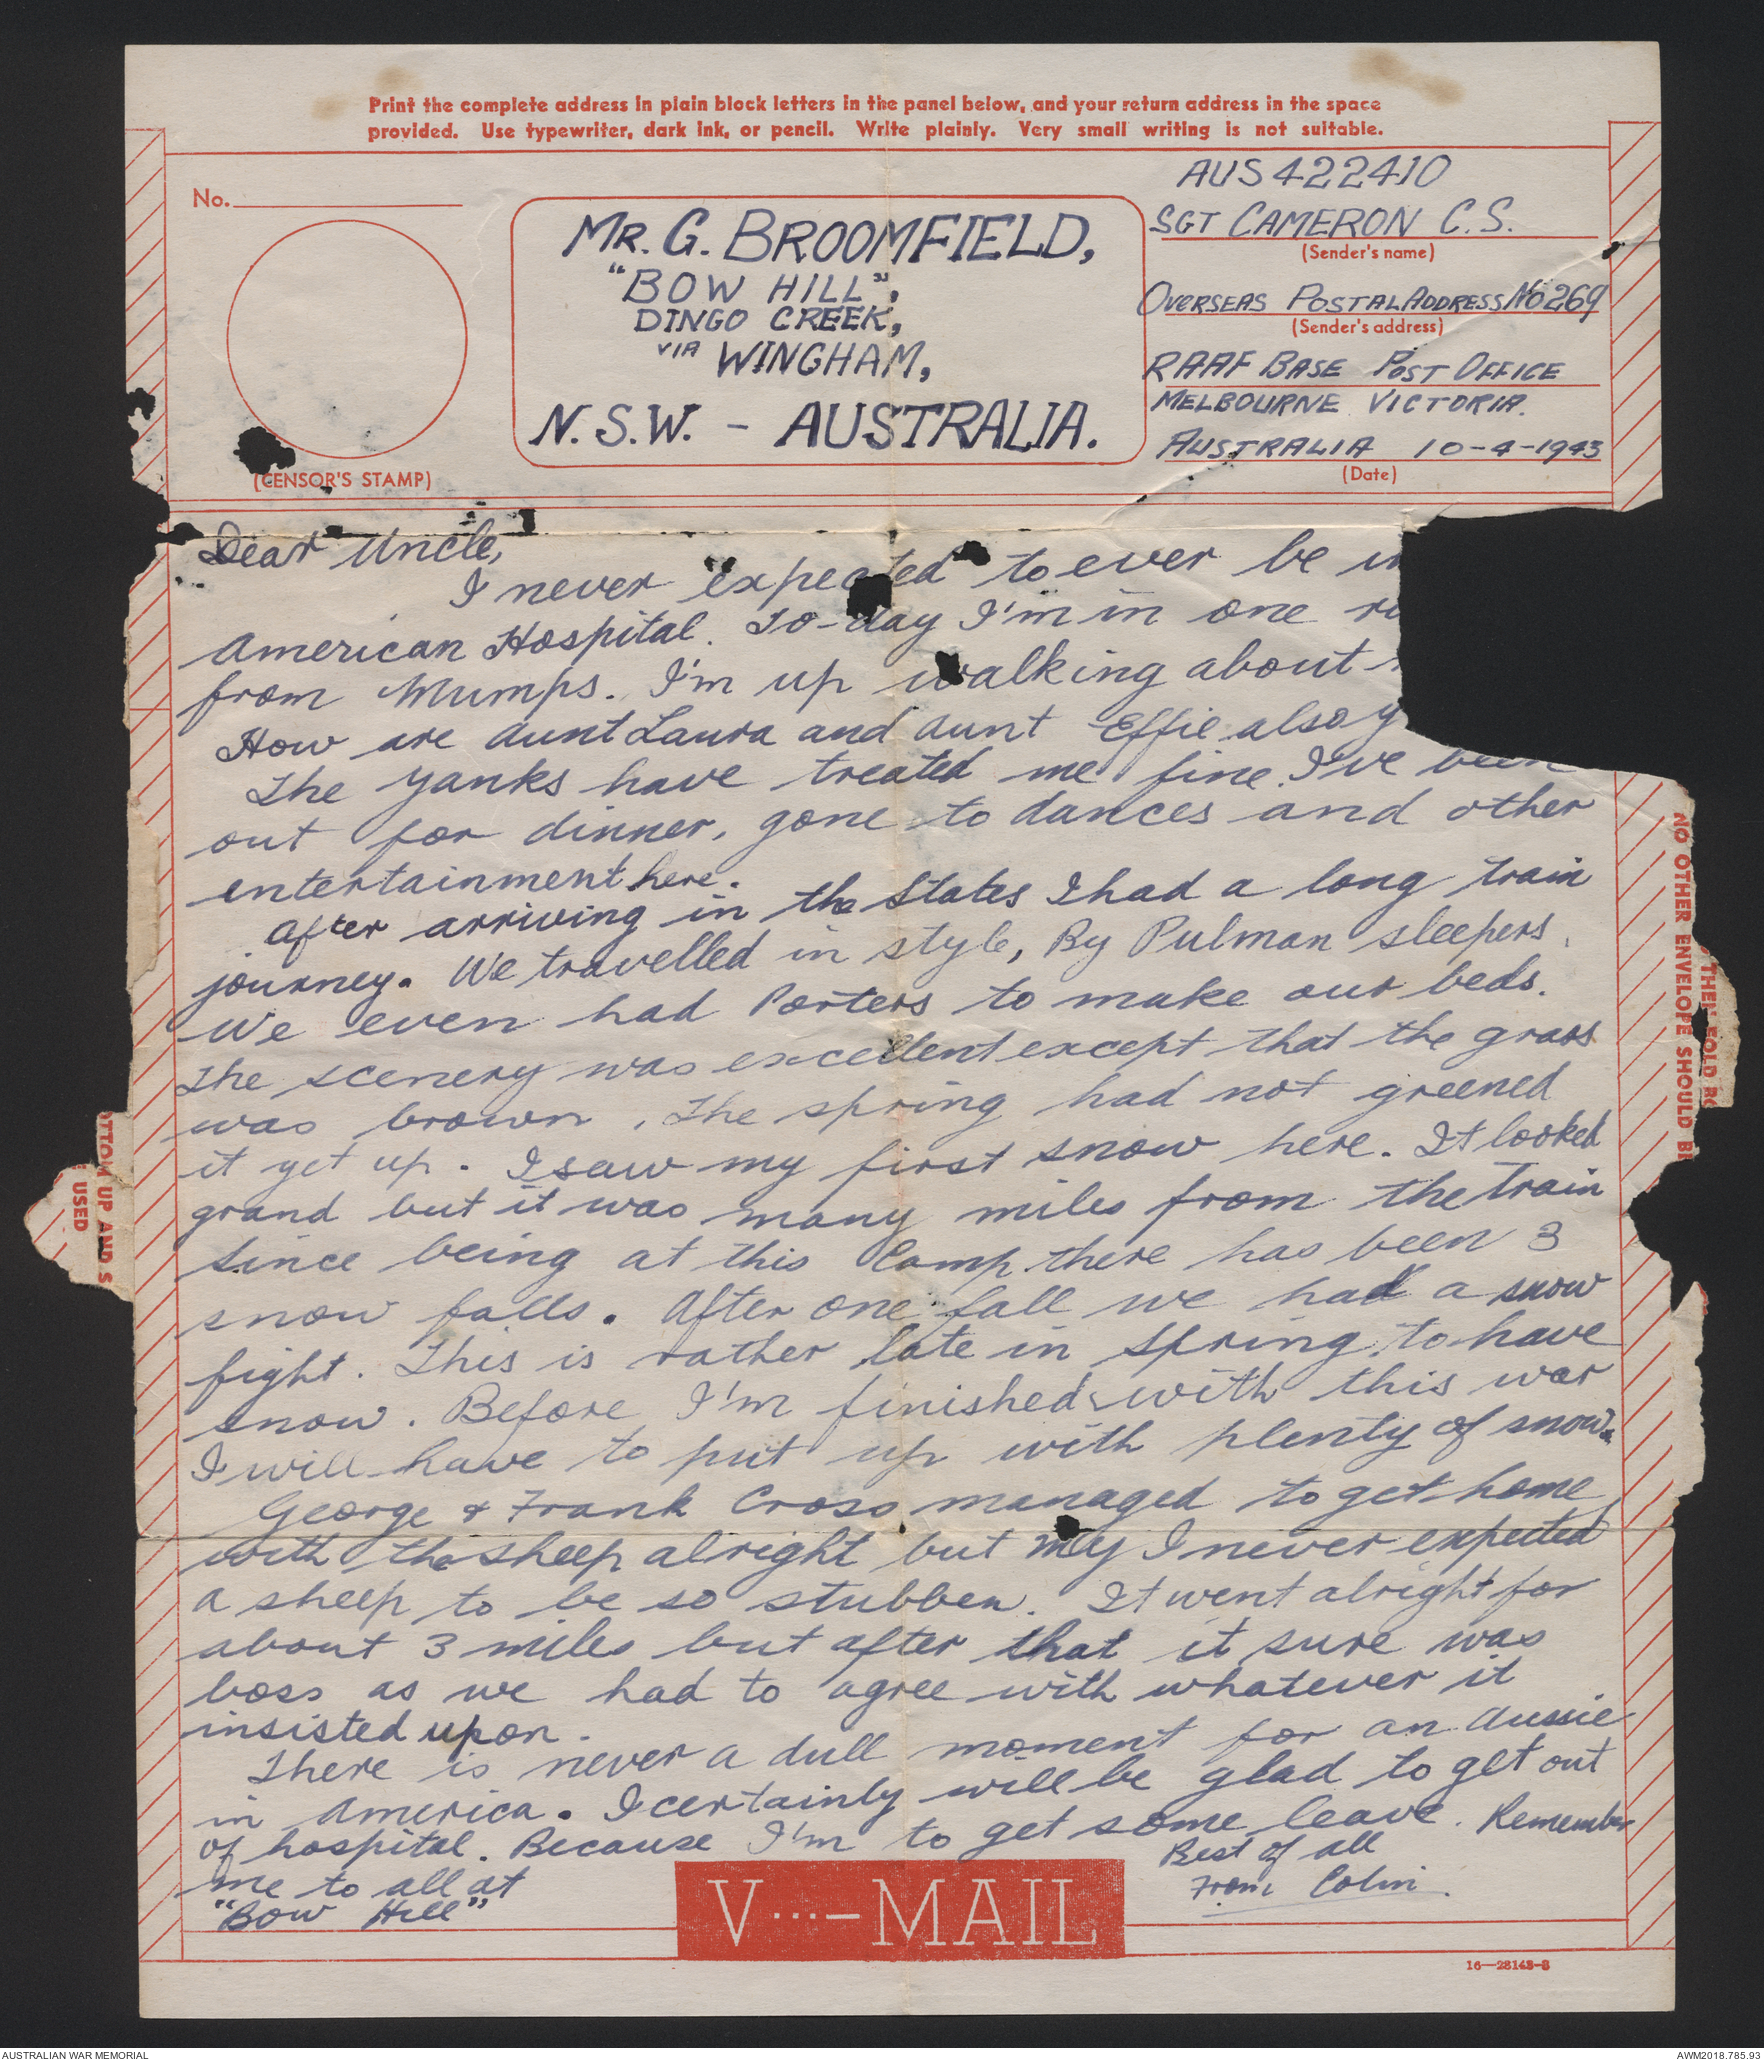 Print the complete address in plain block letters in the panel below, and your return address in the space
provided. Use typewriter, dark ink, or pencil. Write plainly. Very small writing is not suitable.
No.
(CENSOR'S STAMP)
MR. G. BROOMFIELD,
"BOW HILL",
DINGO CREEK,
VIA WINGHAM,
N.S.W. - AUSTRALIA.
AUS 422410
SGT CAMERON C.S.
(Sender's name)
OVERSEAS POSTAL ADDRESS No 269
(Sender's address)
RAAF BASE POST OFFICE
MELBOURNE VICTORIA.
AUSTRALIA 10-4-1943
(Date)
Dear Uncle,
I never expected to ever be
American Hospital. To-day I'm in one
from Mumps. I'm up walking about
How are Aunt Laura and Aunt Effie also
The Yanks have treated me fine. I've been
out for dinner, gone to dances and other
entertainment here.
After arriving in the States I had a long train
journey. We travelled in style, By Pulman sleepers.
We even had Porters to make our beds.
The scenery was excellent except that the grass
was brown. The spring had not greened
it yet up. I saw my first snow here. It looked
grand but it was many miles from the train
Since being at this Camp there has been 3
snow falls. After one fall we had a snow
fight. This is rather late in Spring to have
snow. Before I'm finished with this war
I will have to put up with plenty of snow.
George & Frank Cross managed to get home
with the sheep alright but my I never expected
a sheep to be so stubben. It went alright for
about 3 miles but after that it sure was
boss as we had to agree with whatever it
insisted upon.
There is never a dull moment for an Aussie
in America. I certainly will be glad to get out
of hospital. Because I'm to get some leave. Remember
me to all at
"Bow Hill"
Best of all
From Colin.
V···— MAIL
16—28143-3
NO OTHER ENVELOPE SHOULD BE
FOLD
UP AND
USED
AUSTRALIAN WAR MEMORIAL
AWM2018.785.93